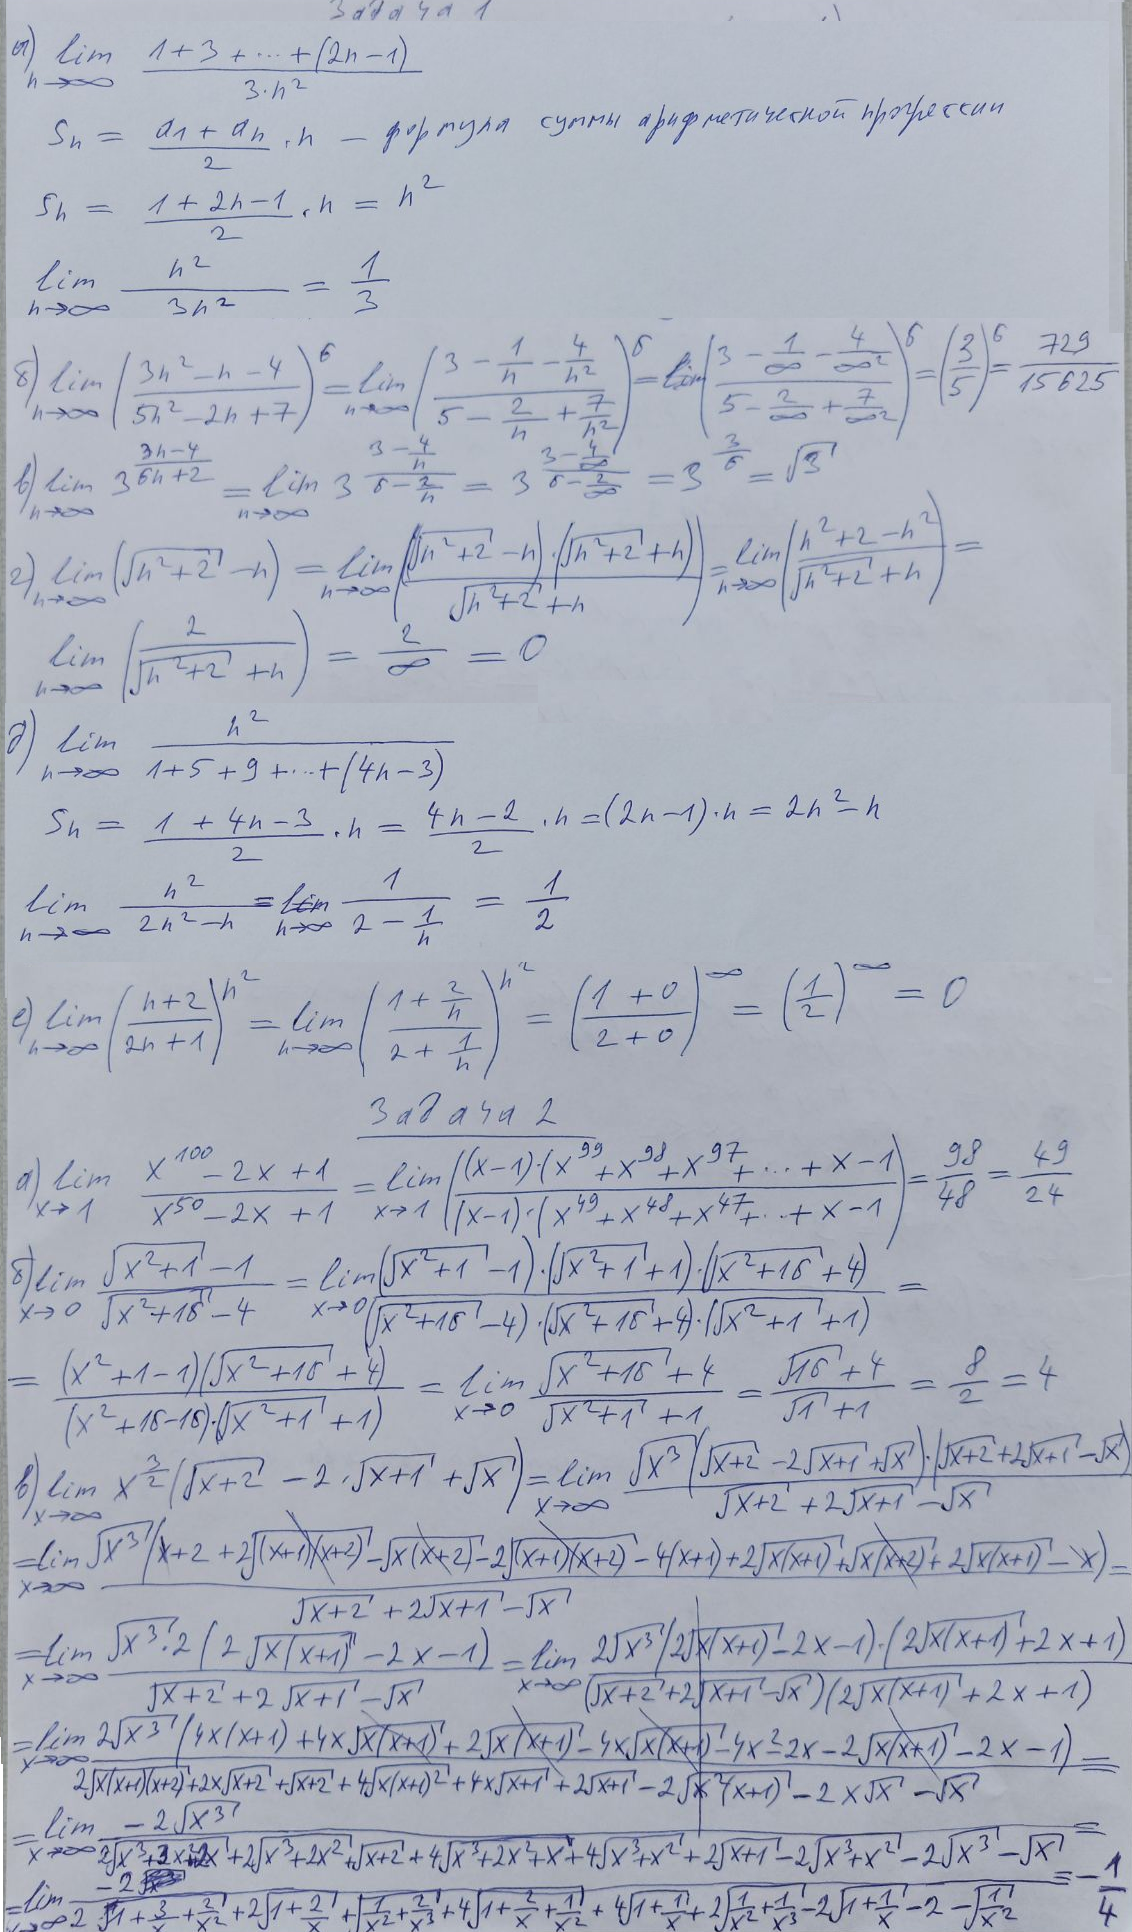 Задача 1
а) lim n→∞ (1+3+...+(2n-1))/(3·n²)
Sn = (a1+an)/2 · n – формула суммы арифметической прогрессии
Sn = (1+2n-1)/2 · n = n²
lim n→∞ n²/(3n²) = 1/3
б) lim n→∞ ((3n²-n-4)/(5n²-2n+7))⁶ = lim n→∞ ((3-1/n-4/n²)/(5-2/n+7/n²))⁶ = lim ((3-1/∞-4/∞²)/(5-2/∞+7/∞²))⁶ = (3/5)⁶ = 729/15625
в) lim n→∞ 3^((3n-4)/(6n+2)) = lim n→∞ 3^((3-4/n)/(6-2/n)) = 3^((3-4/∞)/(6-2/∞)) = 3^(3/6) = √3
г) lim n→∞ (√(n²+2)-n) = lim n→∞ ((√(n²+2)-n)·(√(n²+2)+n))/(√(n²+2)+n) = lim n→∞ ((n²+2-n²)/(√(n²+2)+n)) =
lim n→∞ (2/(√(n²+2)+n)) = 2/∞ = 0
д) lim n→∞ n²/(1+5+9+...+(4n-3))
Sn = (1+4n-3)/2 · n = (4n-2)/2 · n = (2n-1)·n = 2n²-n
lim n→∞ n²/(2n²-n) = lim n→∞ 1/(2-1/n) = 1/2
е) lim n→∞ ((n+2)/(2n+1))^(n²) = lim n→∞ ((1+2/n)/(2+1/n))^(n²) = ((1+0)/(2+0))^∞ = (1/2)^∞ = 0
Задача 2
а) lim x→1 (x¹⁰⁰-2x+1)/(x⁵⁰-2x+1) = lim x→1 ((x-1)·(x⁹⁹+x⁹⁸+x⁹⁷+...+x-1)/((x-1)·(x⁴⁹+x⁴⁸+x⁴⁷+...+x-1)) = 98/48 = 49/24
б) lim x→0 (√(x²+1)-1)/(√(x²+16)-4) = lim x→0 ((√(x²+1)-1)·(√(x²+1)+1)·(√(x²+16)+4))/((√(x²+16)-4)·(√(x²+16)+4)·(√(x²+1)+1)) =
= ((x²+1-1)(√(x²+16)+4))/((x²+16-16)·(√(x²+1)+1)) = lim x→0 (√(x²+16)+4)/(√(x²+1)+1) = (√16+4)/(√1+1) = 8/2 = 4
в) lim x→∞ x^(3/2)(√(x+2)-2·√(x+1)+√x) = lim x→∞ (√x³(√(x+2)-2√(x+1)+√x)·(√(x+2)+2√(x+1)-√x))/(√(x+2)+2√(x+1)-√x)
= lim x→∞ (√x³(x+2+2√((x+1)(x+2))-√(x(x+2))-2√((x+1)(x+2))-4(x+1)+2√(x(x+1))+√(x(x+2))+2√(x(x+1))-x))/(√(x+2)+2√(x+1)-√x) =
= lim x→∞ (√x³·2(2√(x(x+1))-2x-1))/(√(x+2)+2√(x+1)-√x) = lim x→∞ (2√x³(2√(x(x+1))-2x-1)·(2√(x(x+1))+2x+1))/((√(x+2)+2√(x+1)-√x)(2√(x(x+1))+2x+1))
= lim x→∞ (2√x³(4x(x+1)+4x√(x(x+1))+2√(x(x+1))-4x√(x(x+1))-4x²-2x-2√(x(x+1))-2x-1))/(2√(x(x+1)(x+2))+2x√(x+2)+√(x+2)+4√(x(x+1)²)+4x√(x+1)+2√(x+1)-2√(x²(x+1))-2x√x-√x) =
= lim x→∞ (-2√x³)/(2√(x³+3x²+2x)+2√(x³+2x²)+√(x+2)+4√(x³+2x²+x)+4√(x³+x²)+2√(x+1)-2√(x³+x²)-2√x³-√x) =
= lim x→∞ (-2)/(2√(1+3/x+2/x²)+2√(1+2/x)+√(1/x²+2/x³)+4√(1+2/x+1/x²)+4√(1+1/x)+2√(1/x²+1/x³)-2√(1+1/x)-2-√(1/x²)) = -1/4